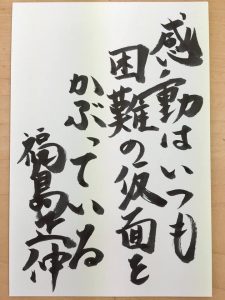 感動はいつも
困難の仮面を
かぶっている
福島正伸